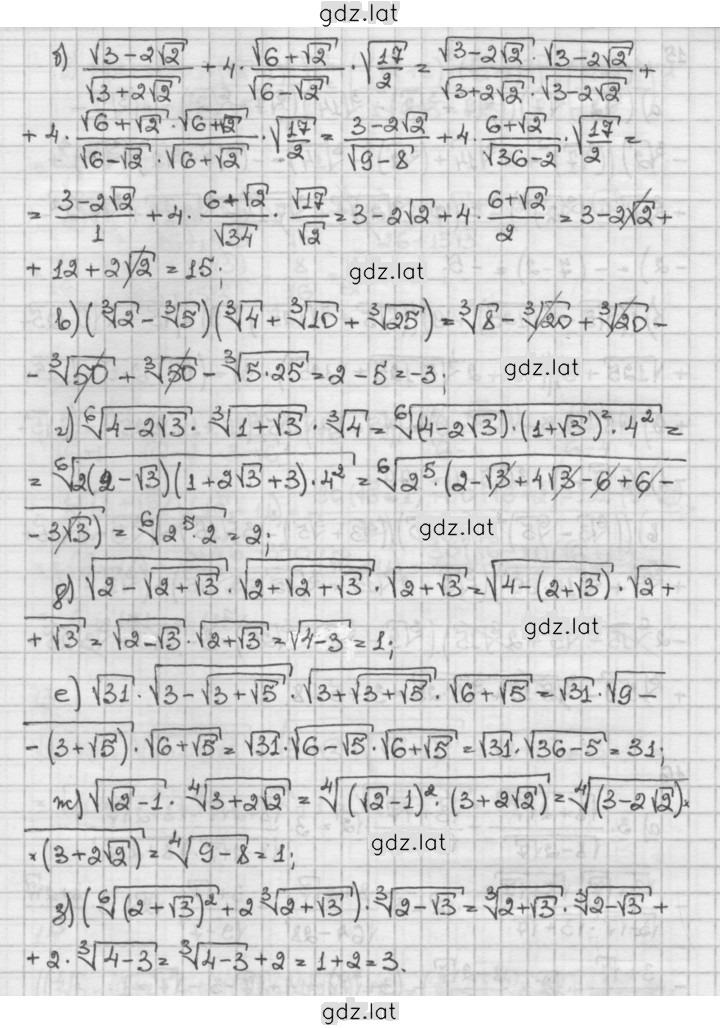 gdz.lat
б) √(3−2√2)/√(3+2√2) + 4·√(6+√2)/√(6−√2)·√(17/2) = (√(3−2√2)·√(3−2√2))/(√(3+2√2)·√(3−2√2)) +
+ 4·(√(6+√2)·√(6+√2))/(√(6−√2)·√(6+√2))·√(17/2) = (3−2√2)/√(9−8) + 4·(6+√2)/√(36−2)·√(17/2) =
= (3−2√2)/1 + 4·(6+√2)/√34·√17/√2 = 3−2√2+4·(6+√2)/2 = 3−2√2+
+ 12 + 2√2 = 15; gdz.lat
в) (∛2 − ∛5)(∛4 + ∛10 + ∛25) = ∛8 − ∛20 + ∛20 −
− ∛50 + ∛50 − ∛(5·25) = 2 − 5 = −3; gdz.lat
г) ⁶√(4−2√3)·∛(1+√3)·∛4 = ⁶√((4−2√3)·(1+√3)²·4²) =
= ⁶√(2(2−√3)(1+2√3+3)·4²) = ⁶√(2⁵·(2−√3+4√3−6+6−
−3√3)) = ⁶√(2⁵·2) = 2; gdz.lat
д) √(2−√(2+√3))·√(2+√(2+√3))·√(2+√3) = √(4−(2+√3))·√(2+
+√3) = √(2−√3)·√(2+√3) = √(4−3) = 1; gdz.lat
е) √31·√(3−√(3+√5))·√(3+√(3+√5))·√(6+√5) = √31·√(9−
−(3+√5))·√(6+√5) = √31·√(6−√5)·√(6+√5) = √31·√(36−5) = 31;
ж) √(√2−1)·⁴√(3+2√2) = ⁴√((√2−1)²·(3+2√2)) = ⁴√((3−2√2)×
×(3+2√2)) = ⁴√(9−8) = 1; gdz.lat
з) (⁶√((2+√3)²) + 2∛(2+√3))·∛(2−√3) = ∛(2+√3)·∛(2−√3) +
+ 2·∛(4−3) = ∛(4−3) + 2 = 1 + 2 = 3.
gdz.lat